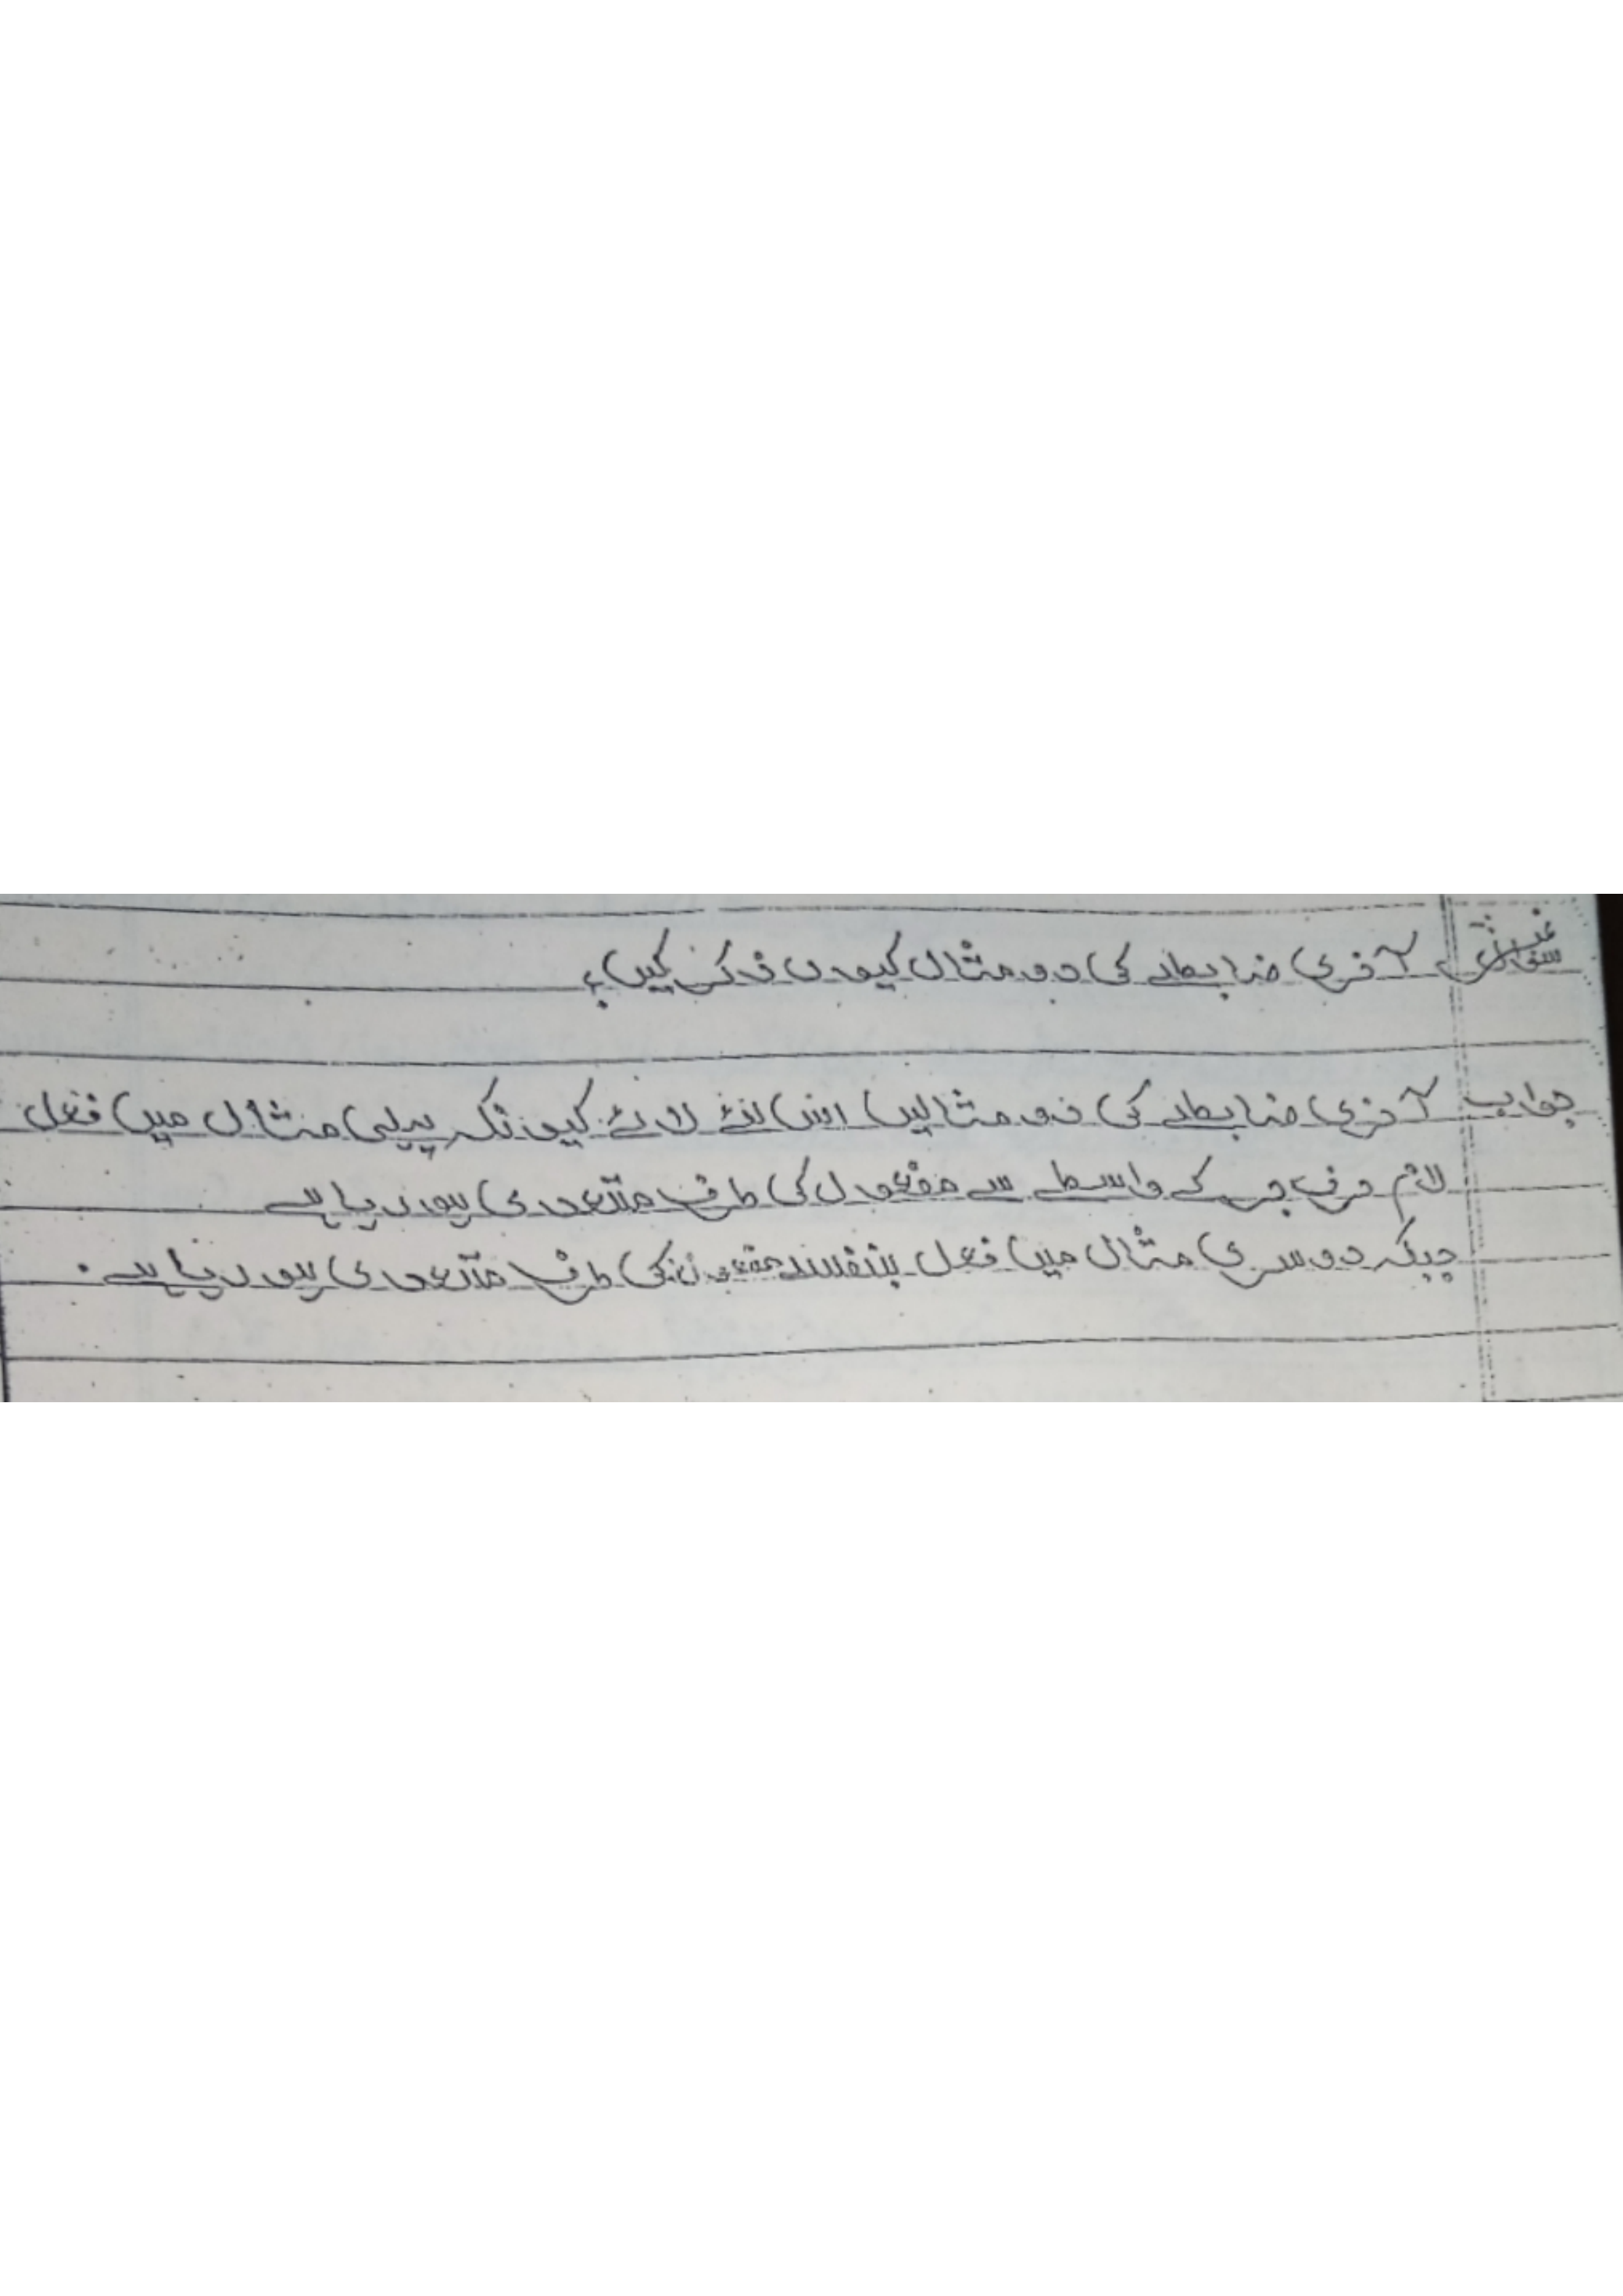 آخری ضابطہ کی دو مثال کیوں ذکر کیں؟
جواب آخری ضابطہ کی دو مثالیں اس لئے لائے کیونکہ پہلی مثال میں فعل
لازم حرف جر کے واسطے سے مفعول کی طرف متعدی ہو رہا ہے
جبکہ دوسری مثال میں فعل بنفسہ مفعول کی طرف متعدی ہو رہا ہے۔